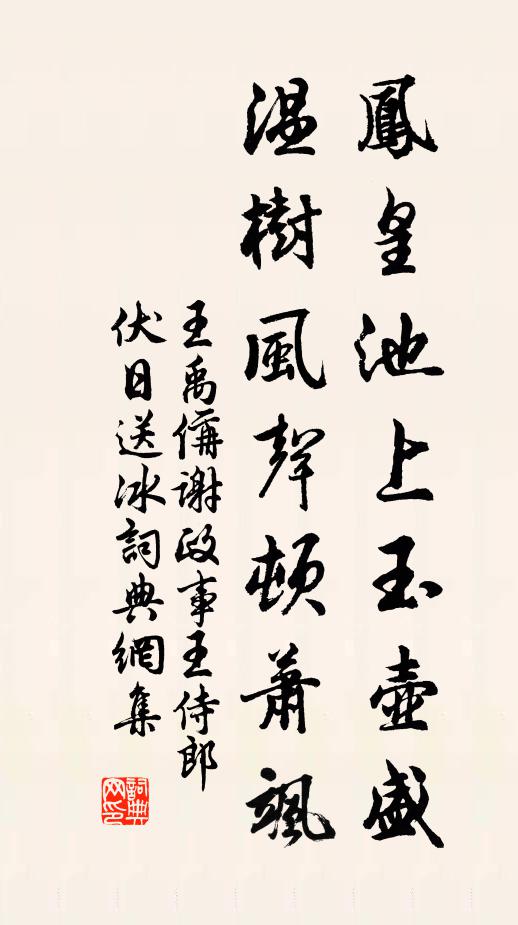 鳳皇池上玉壺盛
溫樹風聲頓蕭颯
王禹偁謝政事王侍郎
伏日送冰詞典網集
詞典網印